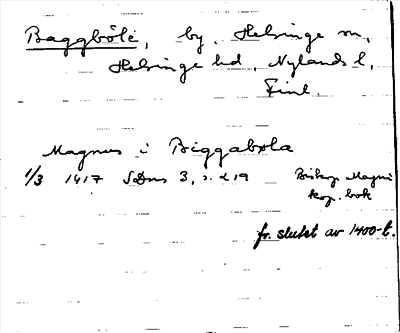 Baggböle, by, Helsinge sn,
Helsinge hd, Nylands l,
Finl.
Magnus i Biggabøla
1/3 1417 SDns 3, s. 219 Biskop Magni
kop. bok
fr. slutet av 1400-t.